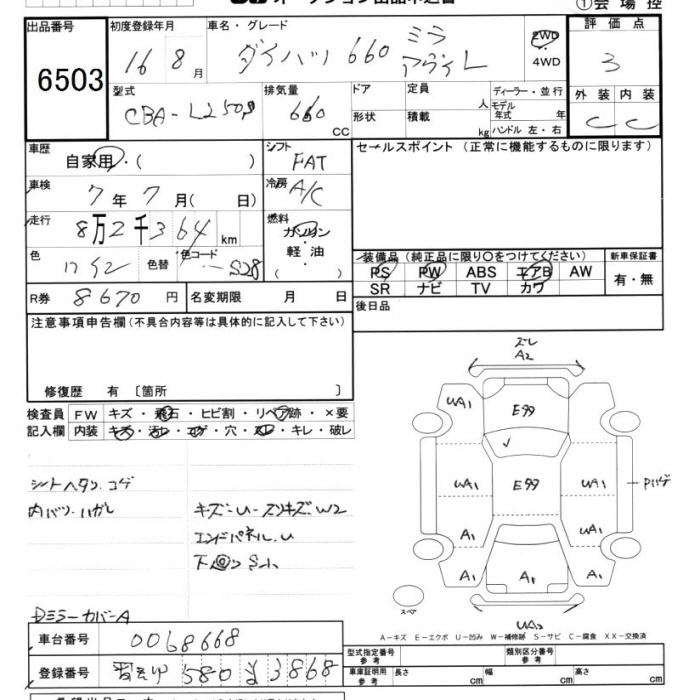 オークション出品申込書
①会場控
出品番号
6503
初度登録年月
16 8月
車名・グレード
ダイハツ 660 ミラ
アヴィ L
2WD
4WD
評価点
3
外装 内装
C C
型式
CBA-L250S
排気量
660
CC
ドア
形状
定員
人
積載
kg
ディーラー・並行
モデル
年式 年
ハンドル 左・右
車歴
自家用・( )
シフト
FAT
セールスポイント (正常に機能するものに限ります)
車検
7年7月( 日)
冷房
A/C
走行
8万2千364km
燃料
ガソリン
・
軽油
( )
色
ワイン
色替
色コード
S28
装備品(純正品に限り○をつけてください)
PS PW ABS エアB AW
SR ナビ TV カワ
新車保証書
有・無
R券 8670円
名変期限 月 日
後日品
注意事項申告欄(不具合内容等は具体的に記入して下さい)
修復歴 有 〔箇所 〕
検査員
記入欄
FW キズ・飛石・ヒビ割・リペア跡・×要
内装 キズ・汚レ・コゲ・穴・スレ・キレ・破レ
シートヘタリ、コゲ
内バリ、ハガレ
キズ・U・スリキズ・W2
エンドパネル、U
下回りS小
Dミラーカバー A
ズレ
A2
UA1
E99
E99
UA1
UA1
A1
UA1
A1
A1
A1
Pハゲ
UA2
スペア
A−キズ E−エクボ U−凹み W−補修跡 S−サビ C−腐食 XX−交換済
車台番号
0068668
登録番号
習志野 580 3868
型式指定番号
参考
類別区分番号
参考
車庫証明用
参考
長さ cm
幅 cm
高さ cm